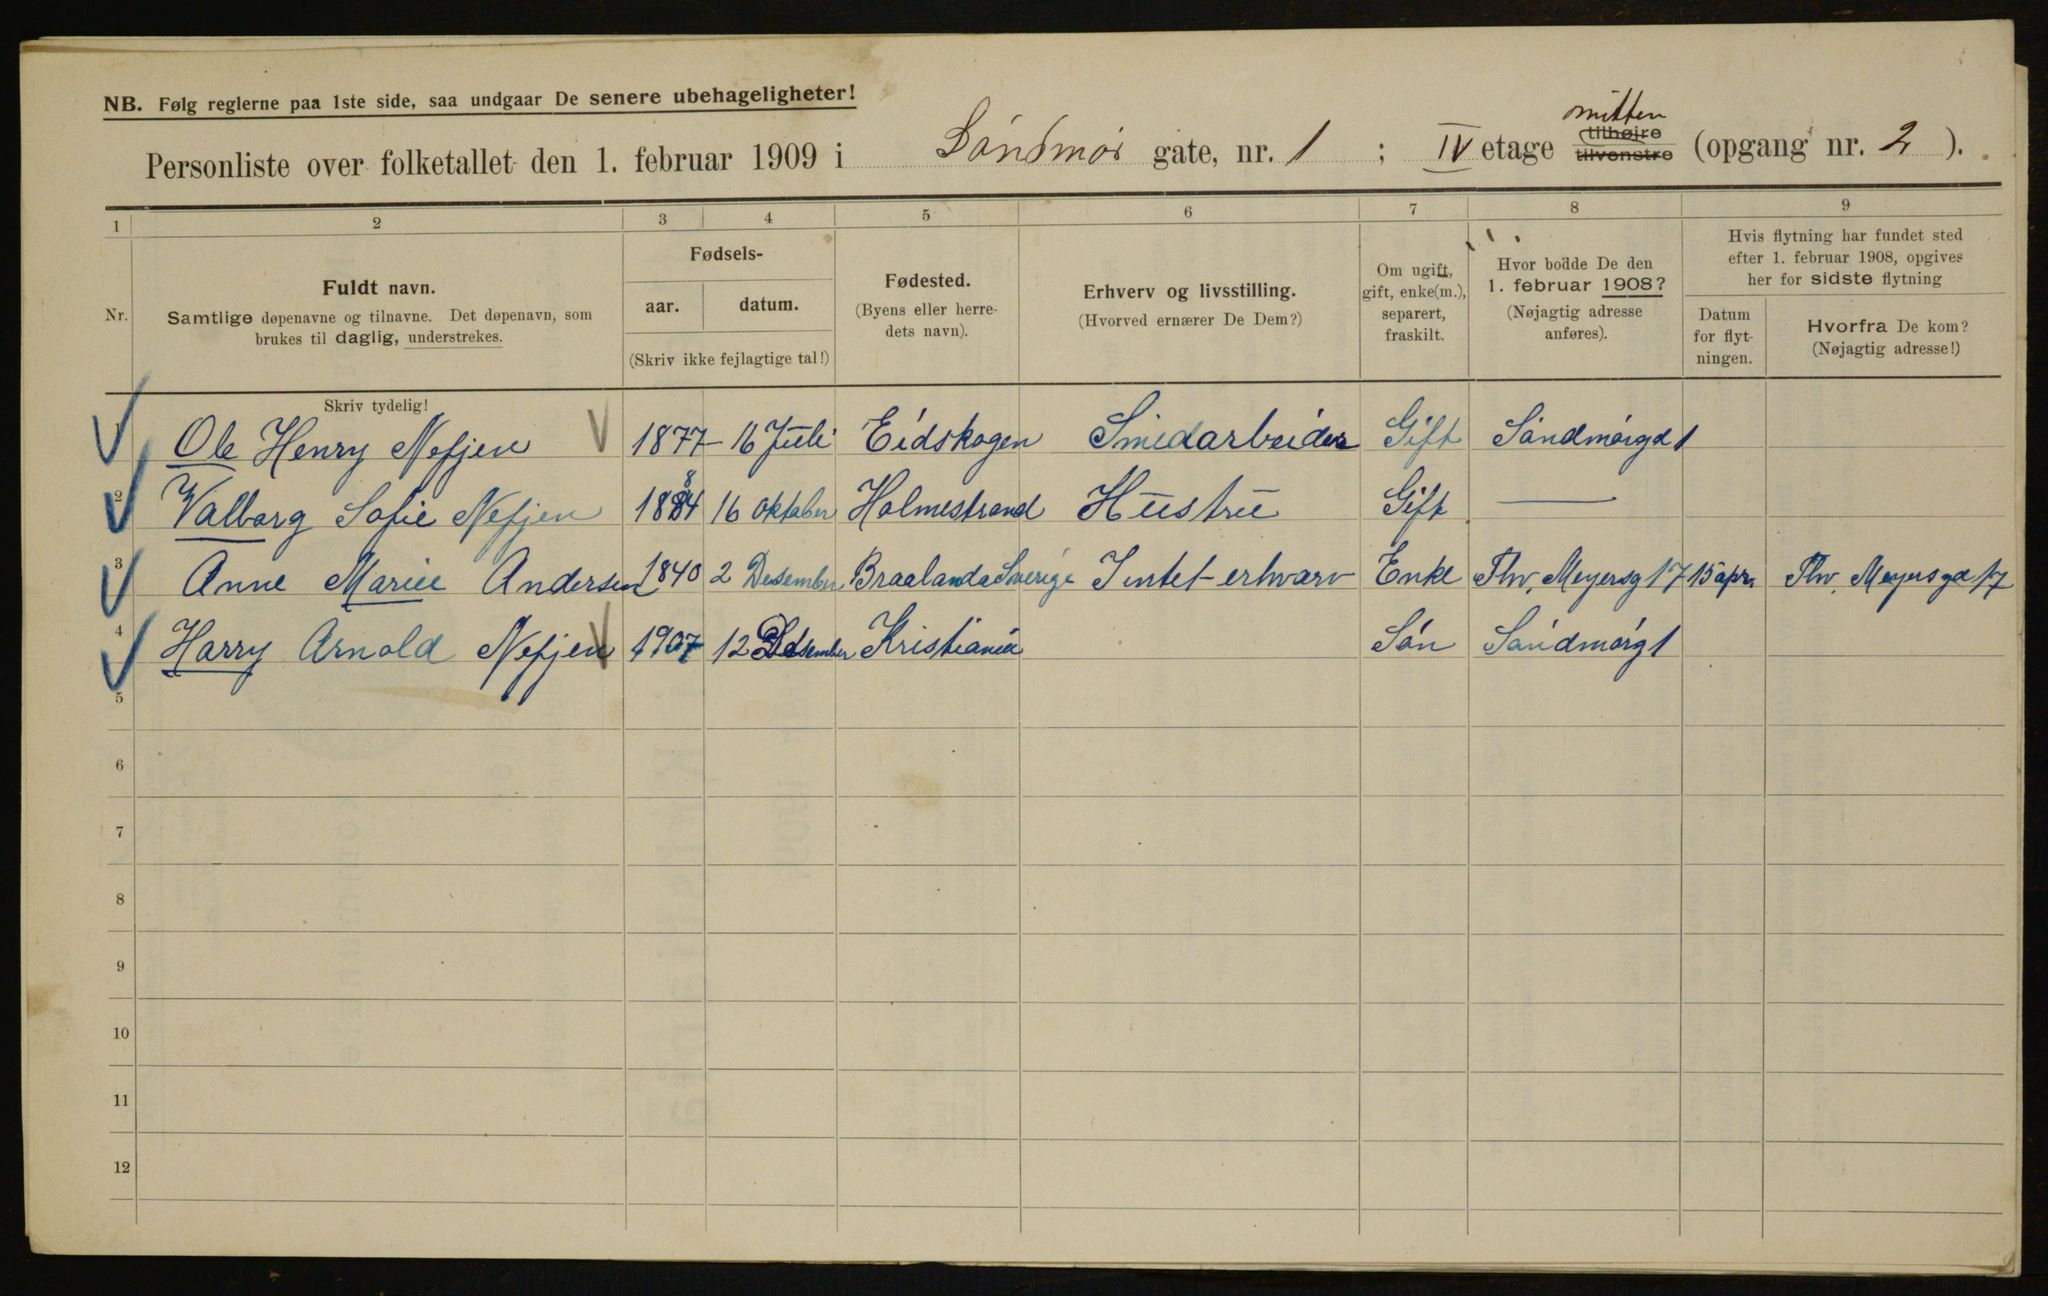 NB. Følg reglerne paa 1ste side, saa undgaar De senere ubehageligheter!
mitten
Personliste over folketallet den 1. februar 1909 i Söndmör gate, nr. 1 ; IV etage tilhøire tilvenstre (opgang nr. 2 ).
1 2 3 4 5 6 7 8 9
Nr.
Fuldt navn.
Samtlige døpenavne og tilnavne. Det døpenavn, som
brukes til daglig, understrekes.
Skriv tydelig!
Fødsels-
aar. datum.
(Skriv ikke fejlagtige tal!)
Fødested.
(Byens eller herre-
dets navn).
Erhverv og livsstilling.
(Hvorved ernærer De Dem?)
Om ugift,
gift, enke(m.),
separert,
fraskilt.
Hvor bodde De den
1. februar 1908?
(Nøjagtig adresse
anføres).
Hvis flytning har fundet sted
efter 1. februar 1908, opgives
her for sidste flytning
Datum
for flyt-
ningen.
Hvorfra De kom?
(Nøjagtig adresse!)
Ole Henry Nefjen 1877 - 16 Juli Eidskogen Smedarbeider Gift Söndmörgd 1
2 Valborg Sofie Nefjen 1884 16 Oktober Holmestrand Hustru Gift —
3 Anne Marie Andersen 1840 2 Desember Braalanda Sverige Intet erhværv Enke Thv. Meyersg 17 15 apr. Thv. Meyersgd 17
4 Harry Arnold Nefjen 1907 12 Desember Kristiania Sön Söndmörg 1
5
6
7
8
9
10
11
12